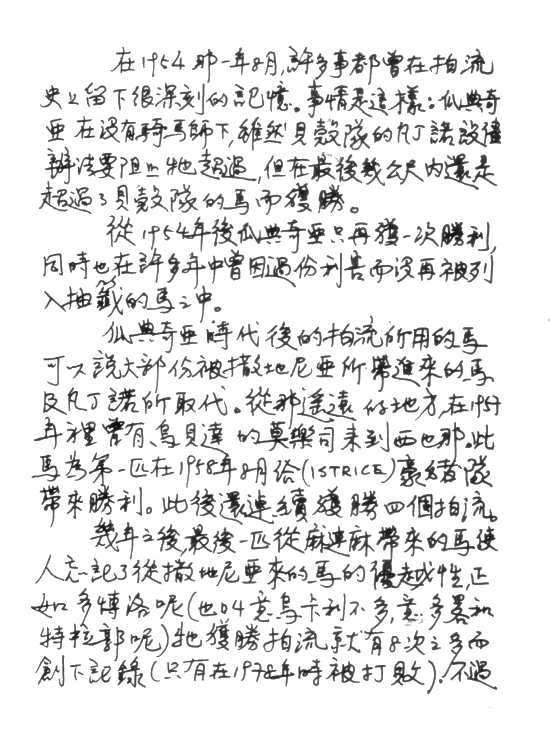 在1954那一年8月,許多事都曾在拍流
史上留下很深刻的記憶。事情是這樣:瓜典奇
亞在沒有騎馬師下,雖然貝殼隊的凡丁諾設盡
辦法要阻止牠超過,但在最後幾公尺內還是
超過了貝殼隊的馬而獲勝。
從1954年後瓜典奇亞只再獲一次勝利,
同時也在許多年中曾因過份利害而沒再被列
入抽籤的馬之中。
瓜典奇亞時代後的拍流所用的馬
可以說大部份被撒地尼亞所帶進來的馬
及凡丁諾所取代。從那遙遠的地方,在1957
年裡曾有烏貝達的莫樂司來到西也那。此
馬為第一匹在1958年8月給(ISTRICE)豪豬隊
帶來勝利。此後還連續獲勝四個拍流。
幾年之後,最後一匹從麻連麻帶來的馬使
人忘記了從撒地尼亞來的馬的優越性,正
如多博洛呢(也04意烏卡利不多,意多畧和
特拉郭呢)牠獲勝拍流就有8次之多而
創下記錄(只有在1978年時被打敗)。不過